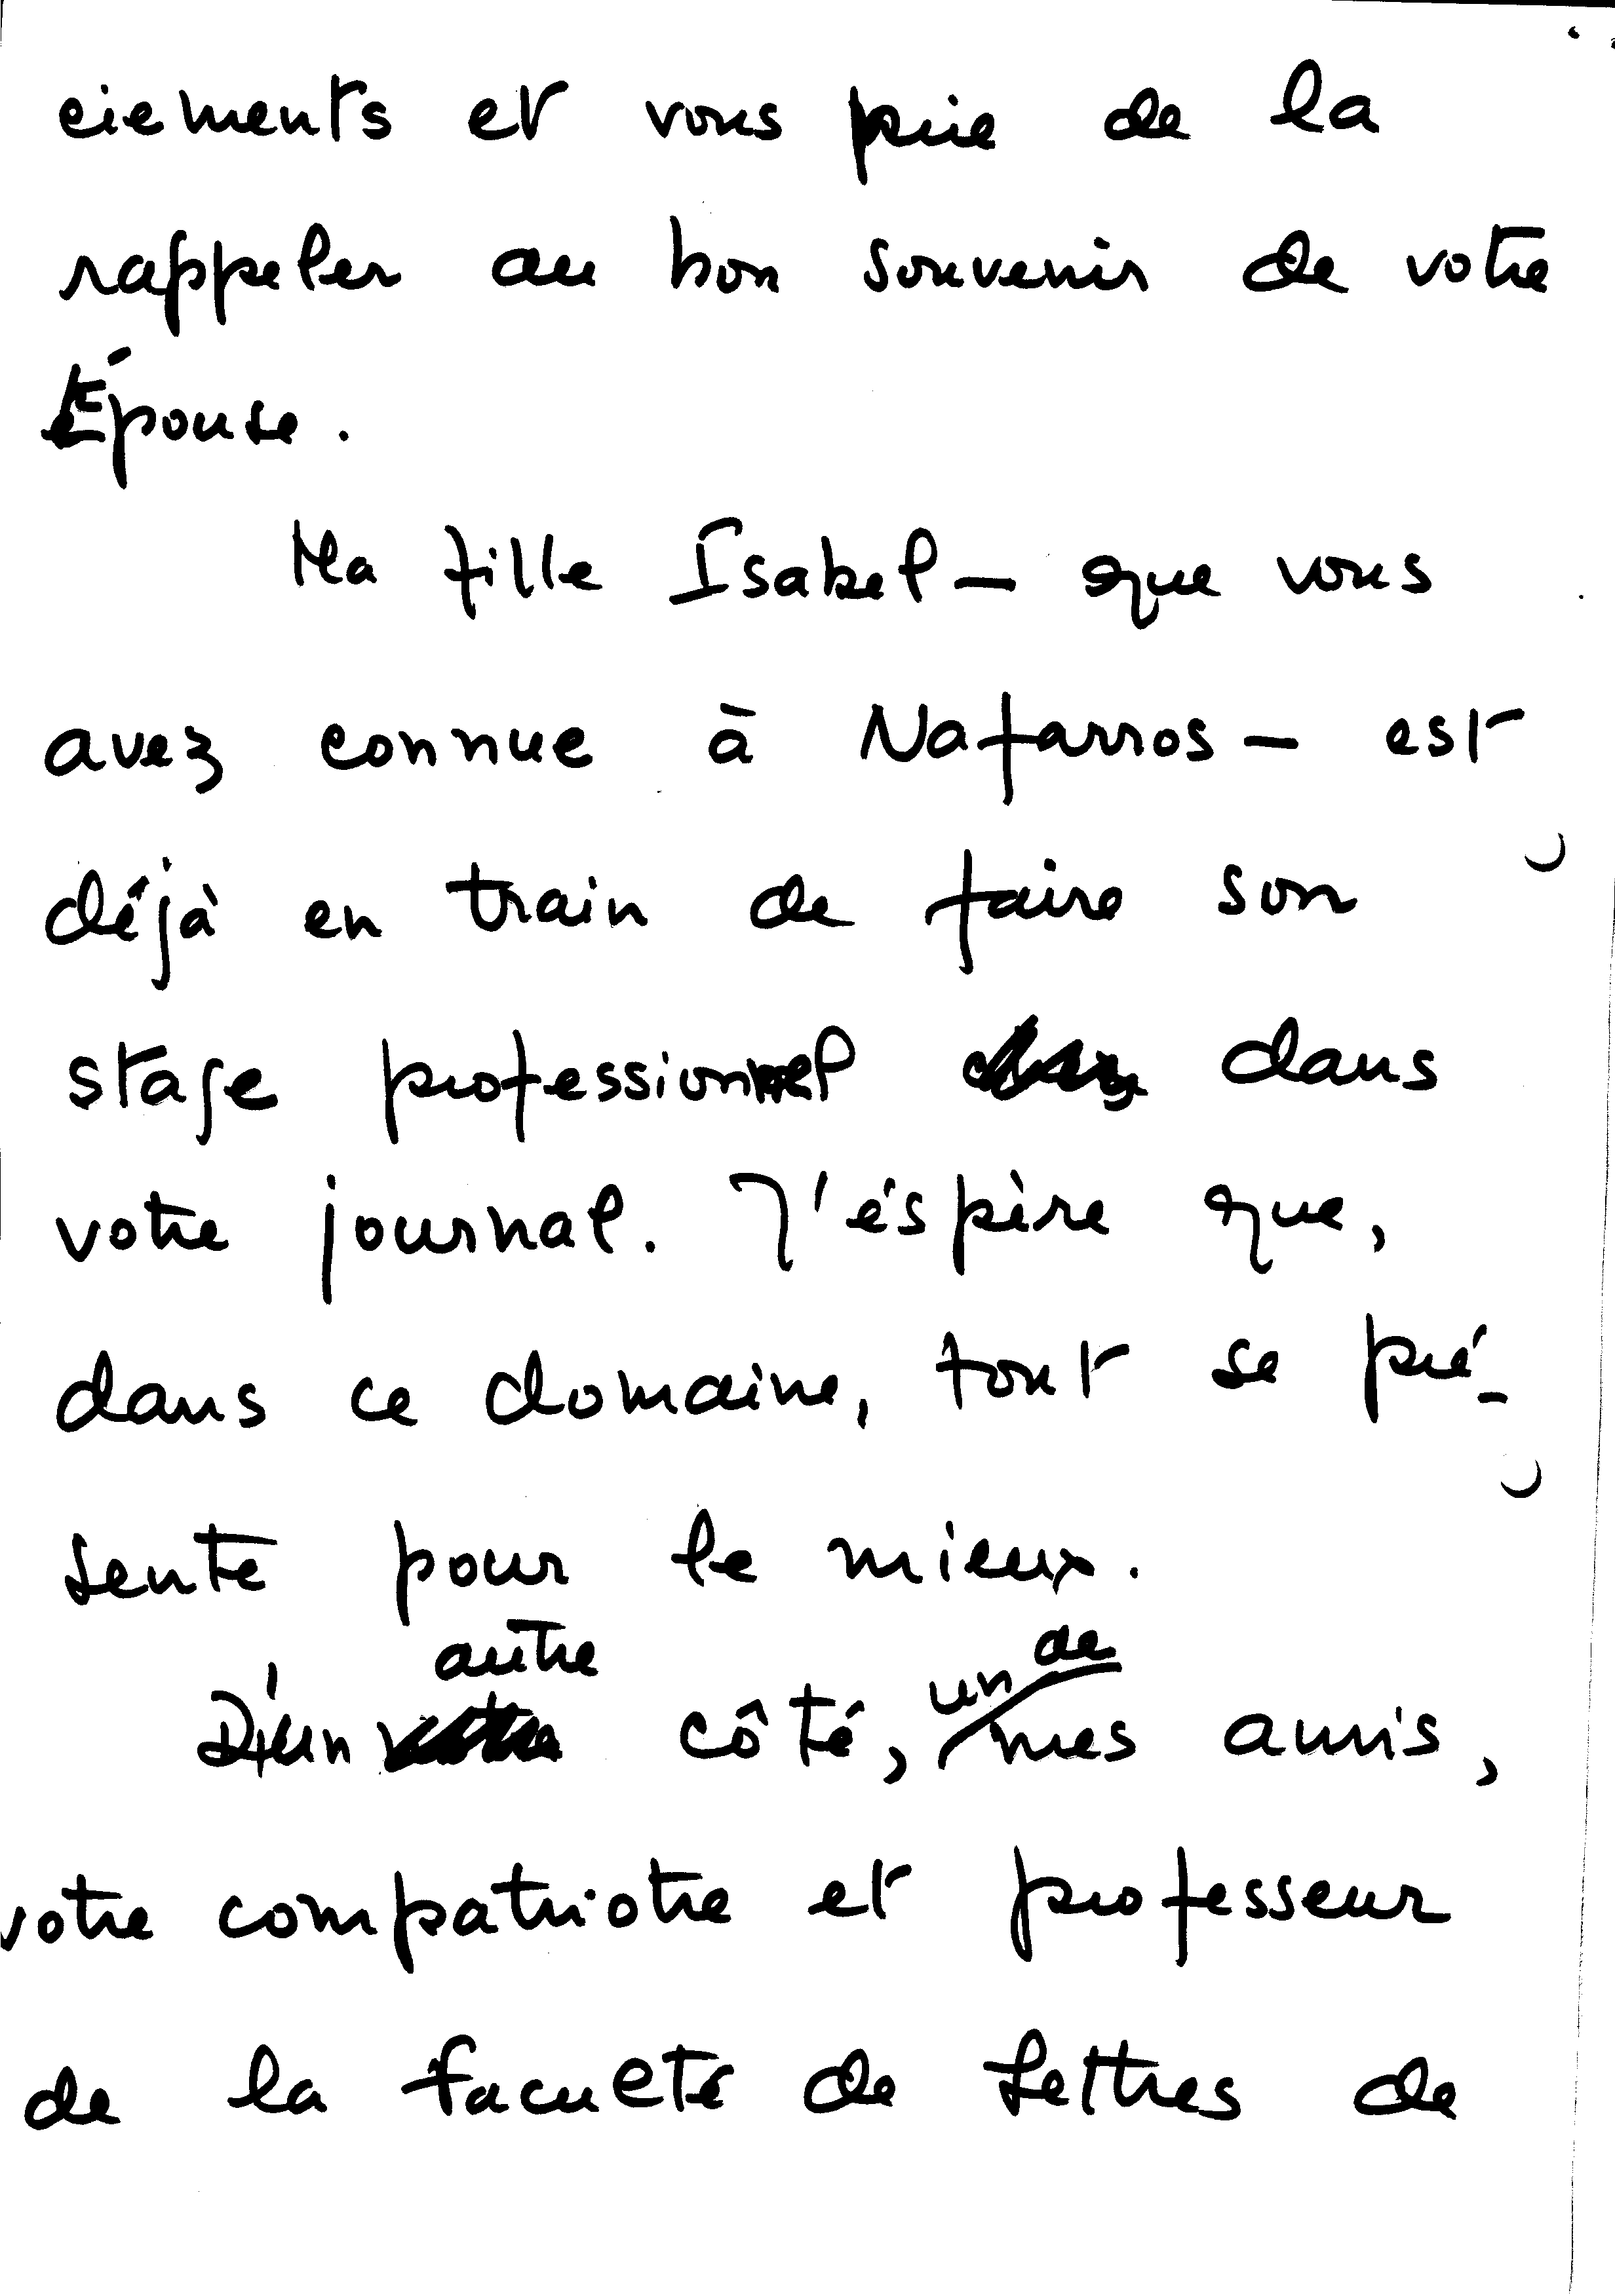 ciements et vous prie de la
rappeler au bon souvenir de votre
Épouse.
Ma fille Isabel — que vous
avez connue à Nafarros — est
déjà en train de faire son
stage professionnel dans
votre journal. J'éspère que,
dans ce domaine, tout se pré-
sente pour le mieux.
D'un autre côté, un de mes amis,
votre compatriote et professeur
de la faculté de Lettres de